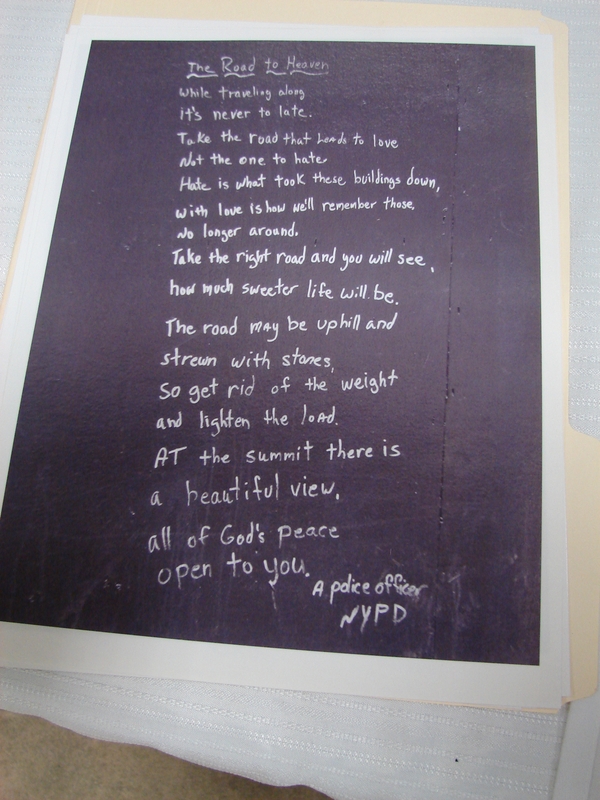 The Road to Heaven
While traveling along
it's never to late.
Take the road that Leads to love
Not the one to hate
Hate is what took these buildings down,
with love is how we'll remember those,
No longer around.
Take the right road and you will see,
how much sweeter life will be.
The road may be uphill and
strewn with stones,
So get rid of the weight
and lighten the load.
AT the summit there is
a beautiful view.
all of God's peace
open to you.
A police officer
NYPD